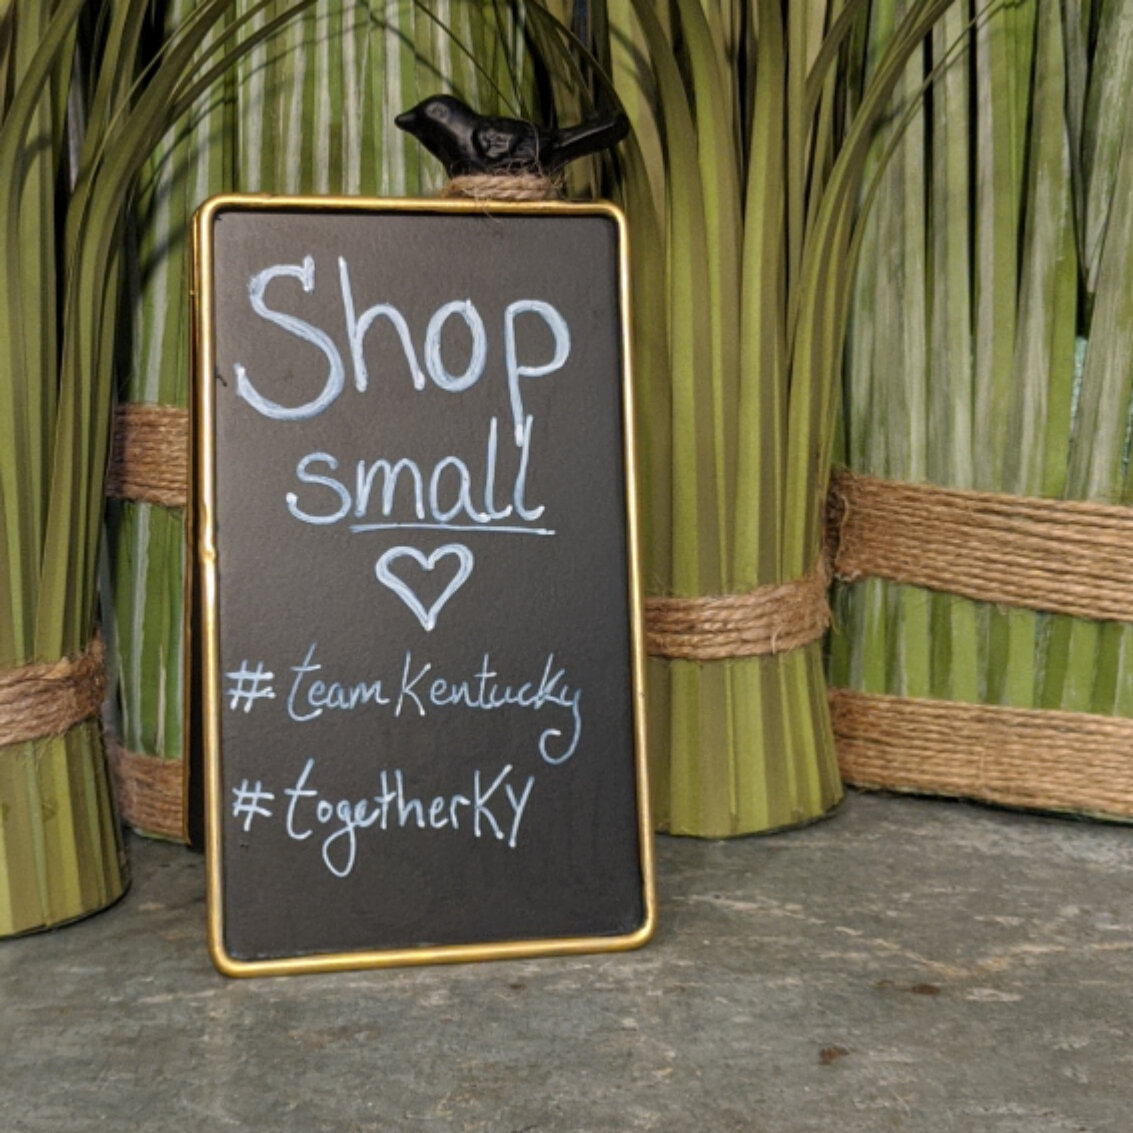 Shop
small
#teamKentucky
#togetherKY